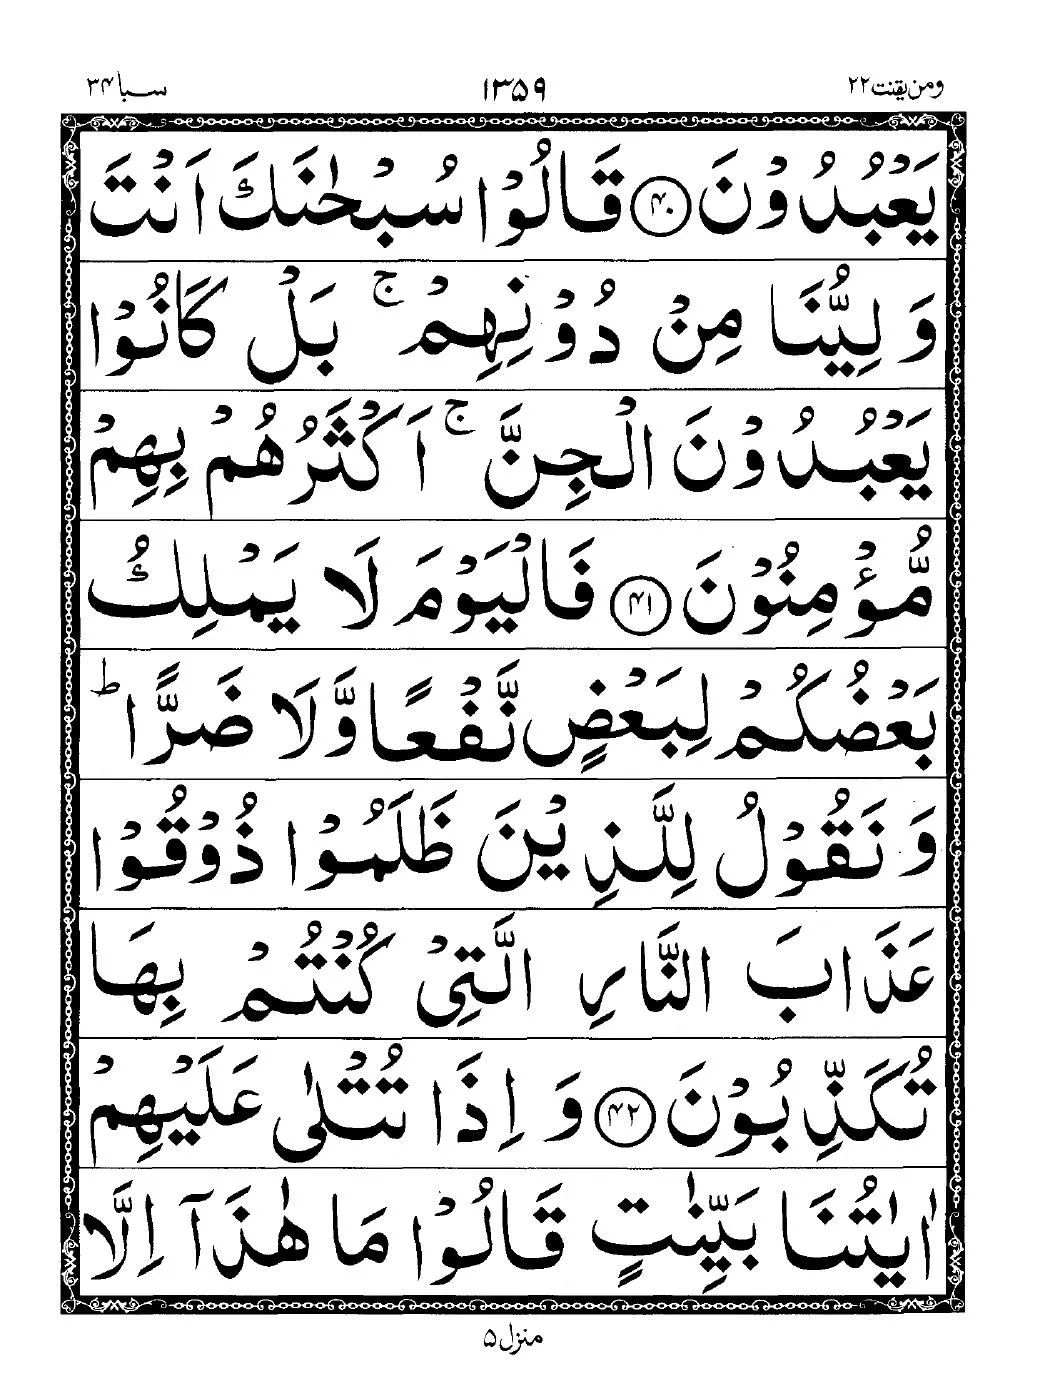 ومن يقنت ٢٢ ١٣٥٩ سبا ٣٤
يَعْبُدُوْنَ ﴿۴۰﴾ قَالُوْا سُبْحٰنَكَ اَنْتَ
وَلِيُّنَا مِنْ دُوْنِهِمْ ۚ بَلْ كَانُوْا
يَعْبُدُوْنَ الْجِنَّ ۚ اَكْثَرُهُمْ بِهِمْ
مُّؤْمِنُوْنَ ﴿۴۱﴾ فَالْيَوْمَ لَا يَمْلِكُ
بَعْضُكُمْ لِبَعْضٍ نَّفْعًا وَّلَا ضَرًّا ؕ
وَنَقُوْلُ لِلَّذِيْنَ ظَلَمُوْا ذُوْقُوْا
عَذَابَ النَّارِ الَّتِيْ كُنْتُمْ بِهَا
تُكَذِّبُوْنَ ﴿۴۲﴾ وَاِذَا تُتْلٰى عَلَيْهِمْ
اٰيٰتُنَا بَيِّنٰتٍ قَالُوْا مَا هٰذَآ اِلَّا
منزل ۵